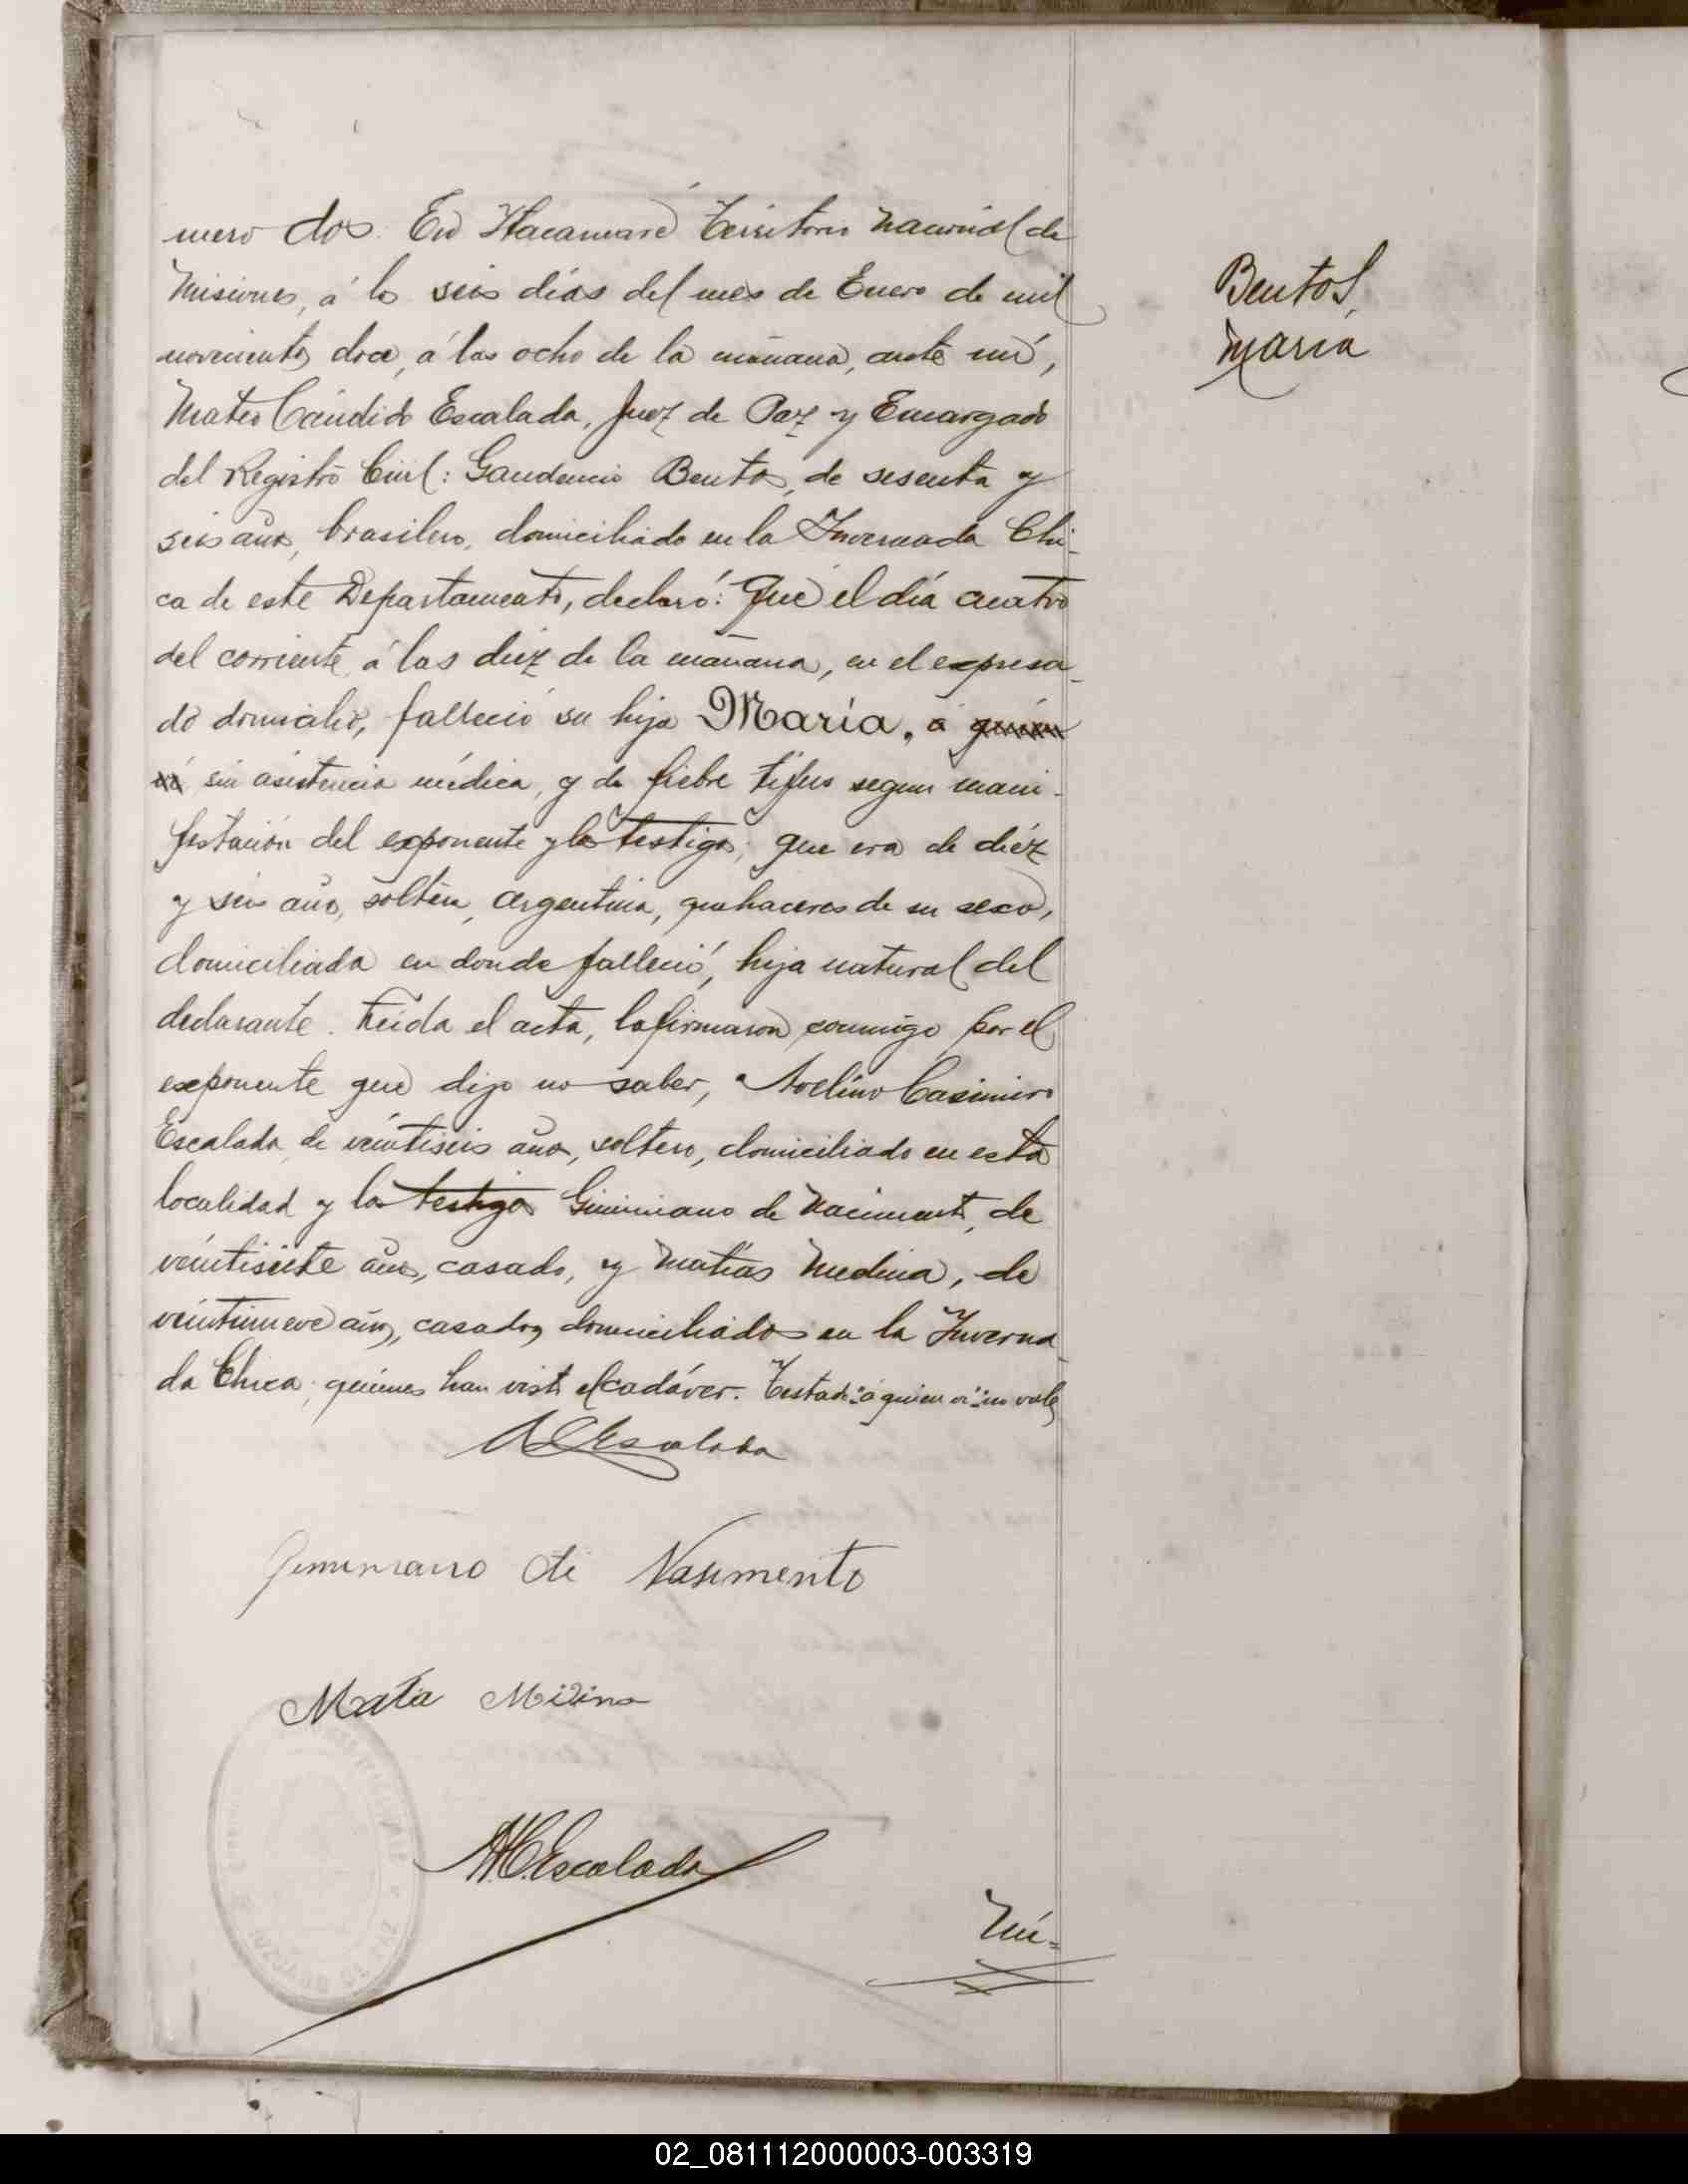 mero dos. En Itacaruaré Territorio Nacional de
Misiones, á los seis días del mes de Enero de mil
novecientos doce, á las ocho de la mañana, ante mí,
Mateo Cándido Escalada, Juez de Paz y Encargado
del Registro Civil: Gaudencio Bentos, de sesenta y
seis años, brasilero, domiciliado en la Invernada Chi-
ca de este Departamento, declaró: Que el día cuatro
del corriente á las diez de la mañana, en el expresa-
do domicilio, falleció su hija María, á quien
ví sin asistencia médica, y de fiebre tifus segun mani-
festación del exponente y los testigos; que era de diéz
y seis años, soltera, argentina, quehaceres de su sexo,
domiciliada en donde falleció, hija natural del
declarante. Leida el acta, la firmaron conmigo por el
exponente que dijo no saber, Avelino Casimiro
Escalada, de veintiseis años, soltero, domiciliado en esta
localidad y los testigos Giminiano de Nacimento, de
veintisiete años, casado, y Matías Medina, de
veintinueve años, casados, domiciliados en la Inverna-
da Chica, quienes han visto el cadáver. Testado: "á quien ví": no vale
A C Escalada
Geminiano di Nasimento
Matia Midina
M. C. Escalada
Nú=
Bentos,
María
02_081112000003-003319